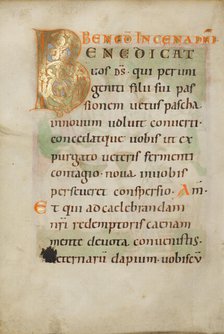 BENED IN CENA DÑI
BENEDICAT
uos ds · qui per uni
geniti filii sui pas
sionem uetus pascha
in nouum uoluit conuerti ·
concedatque uobis ut ex
purgato ueteris fermenti
contagio · noua in uobis
perseueret conspersio · Am̄ ·
Et qui ad caelebrandam
nr̄i redemptoris caenam
mente deuota conuenistis ·
aeternarū dapium uobiscū